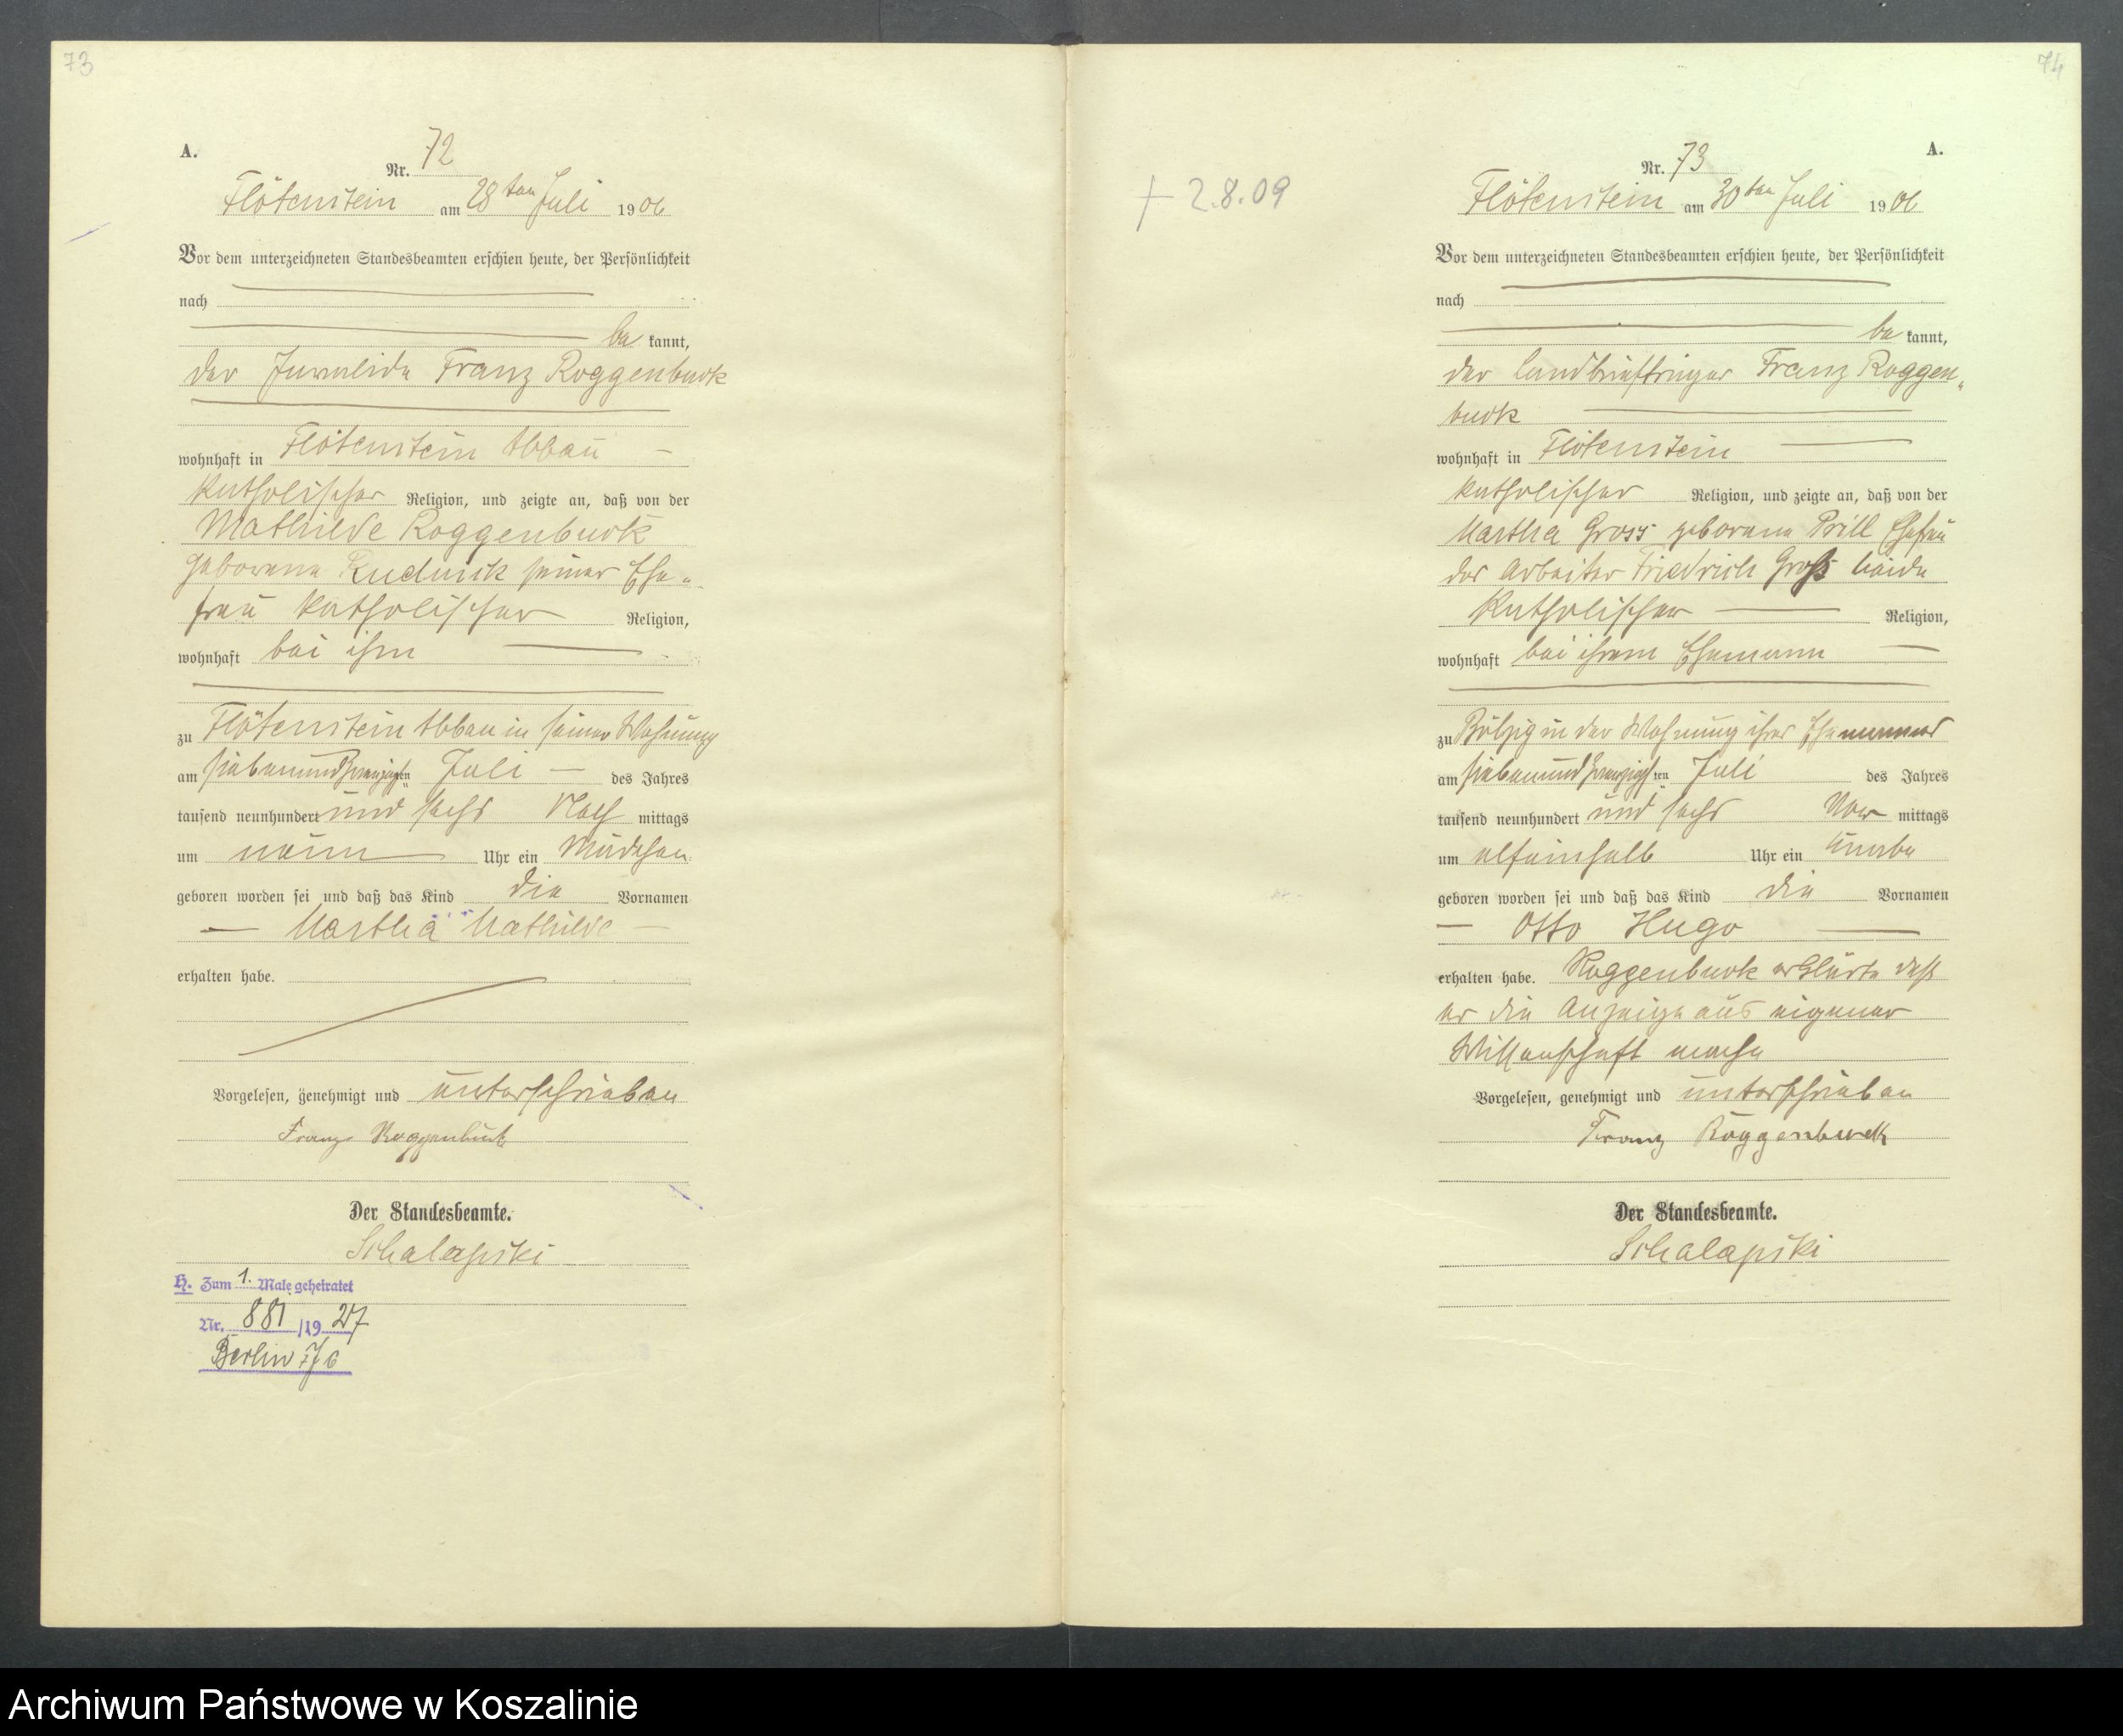 73
A.
Nr. 72
Flötenstein am 28ten Juli 1906
Vor dem unterzeichneten Standesbeamten erschien heute, der Persönlichkeit
nach
be kannt,
der Invalide Franz Roggenbuck
wohnhaft in Flötenstein Abbau
katholischer Religion, und zeigte an, daß von der
Mathilde Roggenbuck
geborene Rudnick seiner Ehe-
frau katholischer Religion,
wohnhaft bei ihm
zu Flötenstein Abbau in seiner Wohnung
am siebenundzwanzigsten Juli des Jahres
tausend neunhundert und sechs Nach mittags
um neun Uhr ein Mädchen
geboren worden sei und daß das Kind die Vornamen
Martha Mathilde
erhalten habe.
Vorgelesen, genehmigt und unterschrieben
Franz Roggenbuck
Der Standesbeamte.
Schalapski
H. Zum 1. Male geheiratet
Nr. 881 /1927
Berlin 7/6
74
+ 2.8.09
A.
Nr. 73
Flötenstein am 30ten Juli 1906
Vor dem unterzeichneten Standesbeamten erschien heute, der Persönlichkeit
nach
be kannt,
der Landbriefträger Franz Roggen-
buck
wohnhaft in Flötenstein
katholischer Religion, und zeigte an, daß von der
Martha Gross geborene Prill Ehefrau
des Arbeiter Friedrich Groß beide
katholischer Religion,
wohnhaft bei ihrem Ehemann
zu Bölzig in der Wohnung ihres Ehemannes
am siebenundzwanzigsten Juli des Jahres
tausend neunhundert und sechs Vor mittags
um elfeinhalb Uhr ein Knabe
geboren worden sei und daß das Kind die Vornamen
Otto Hugo
erhalten habe. Roggenbuck erklärte daß
er die Anzeige aus eigener
Wissenschaft mache
Vorgelesen, genehmigt und unterschrieben
Franz Roggenbuck
Der Standesbeamte.
Schalapski
Archiwum Państwowe w Koszalinie